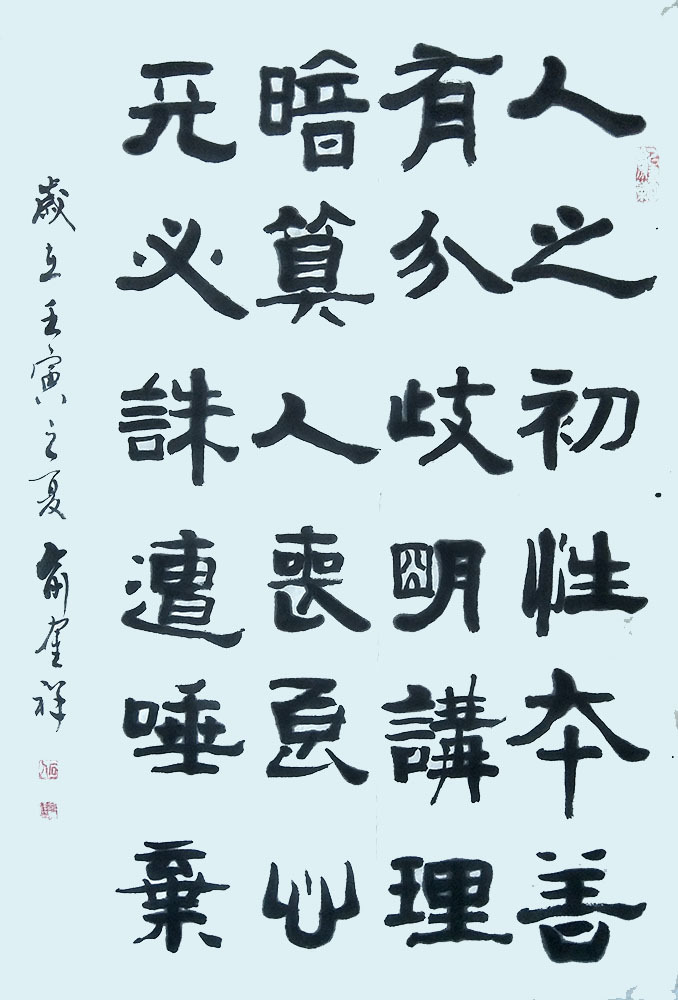 人之初性本善
有分歧明講理
暗算人喪良心
天必誅遭唾棄
歲在壬寅之夏 俞
祥